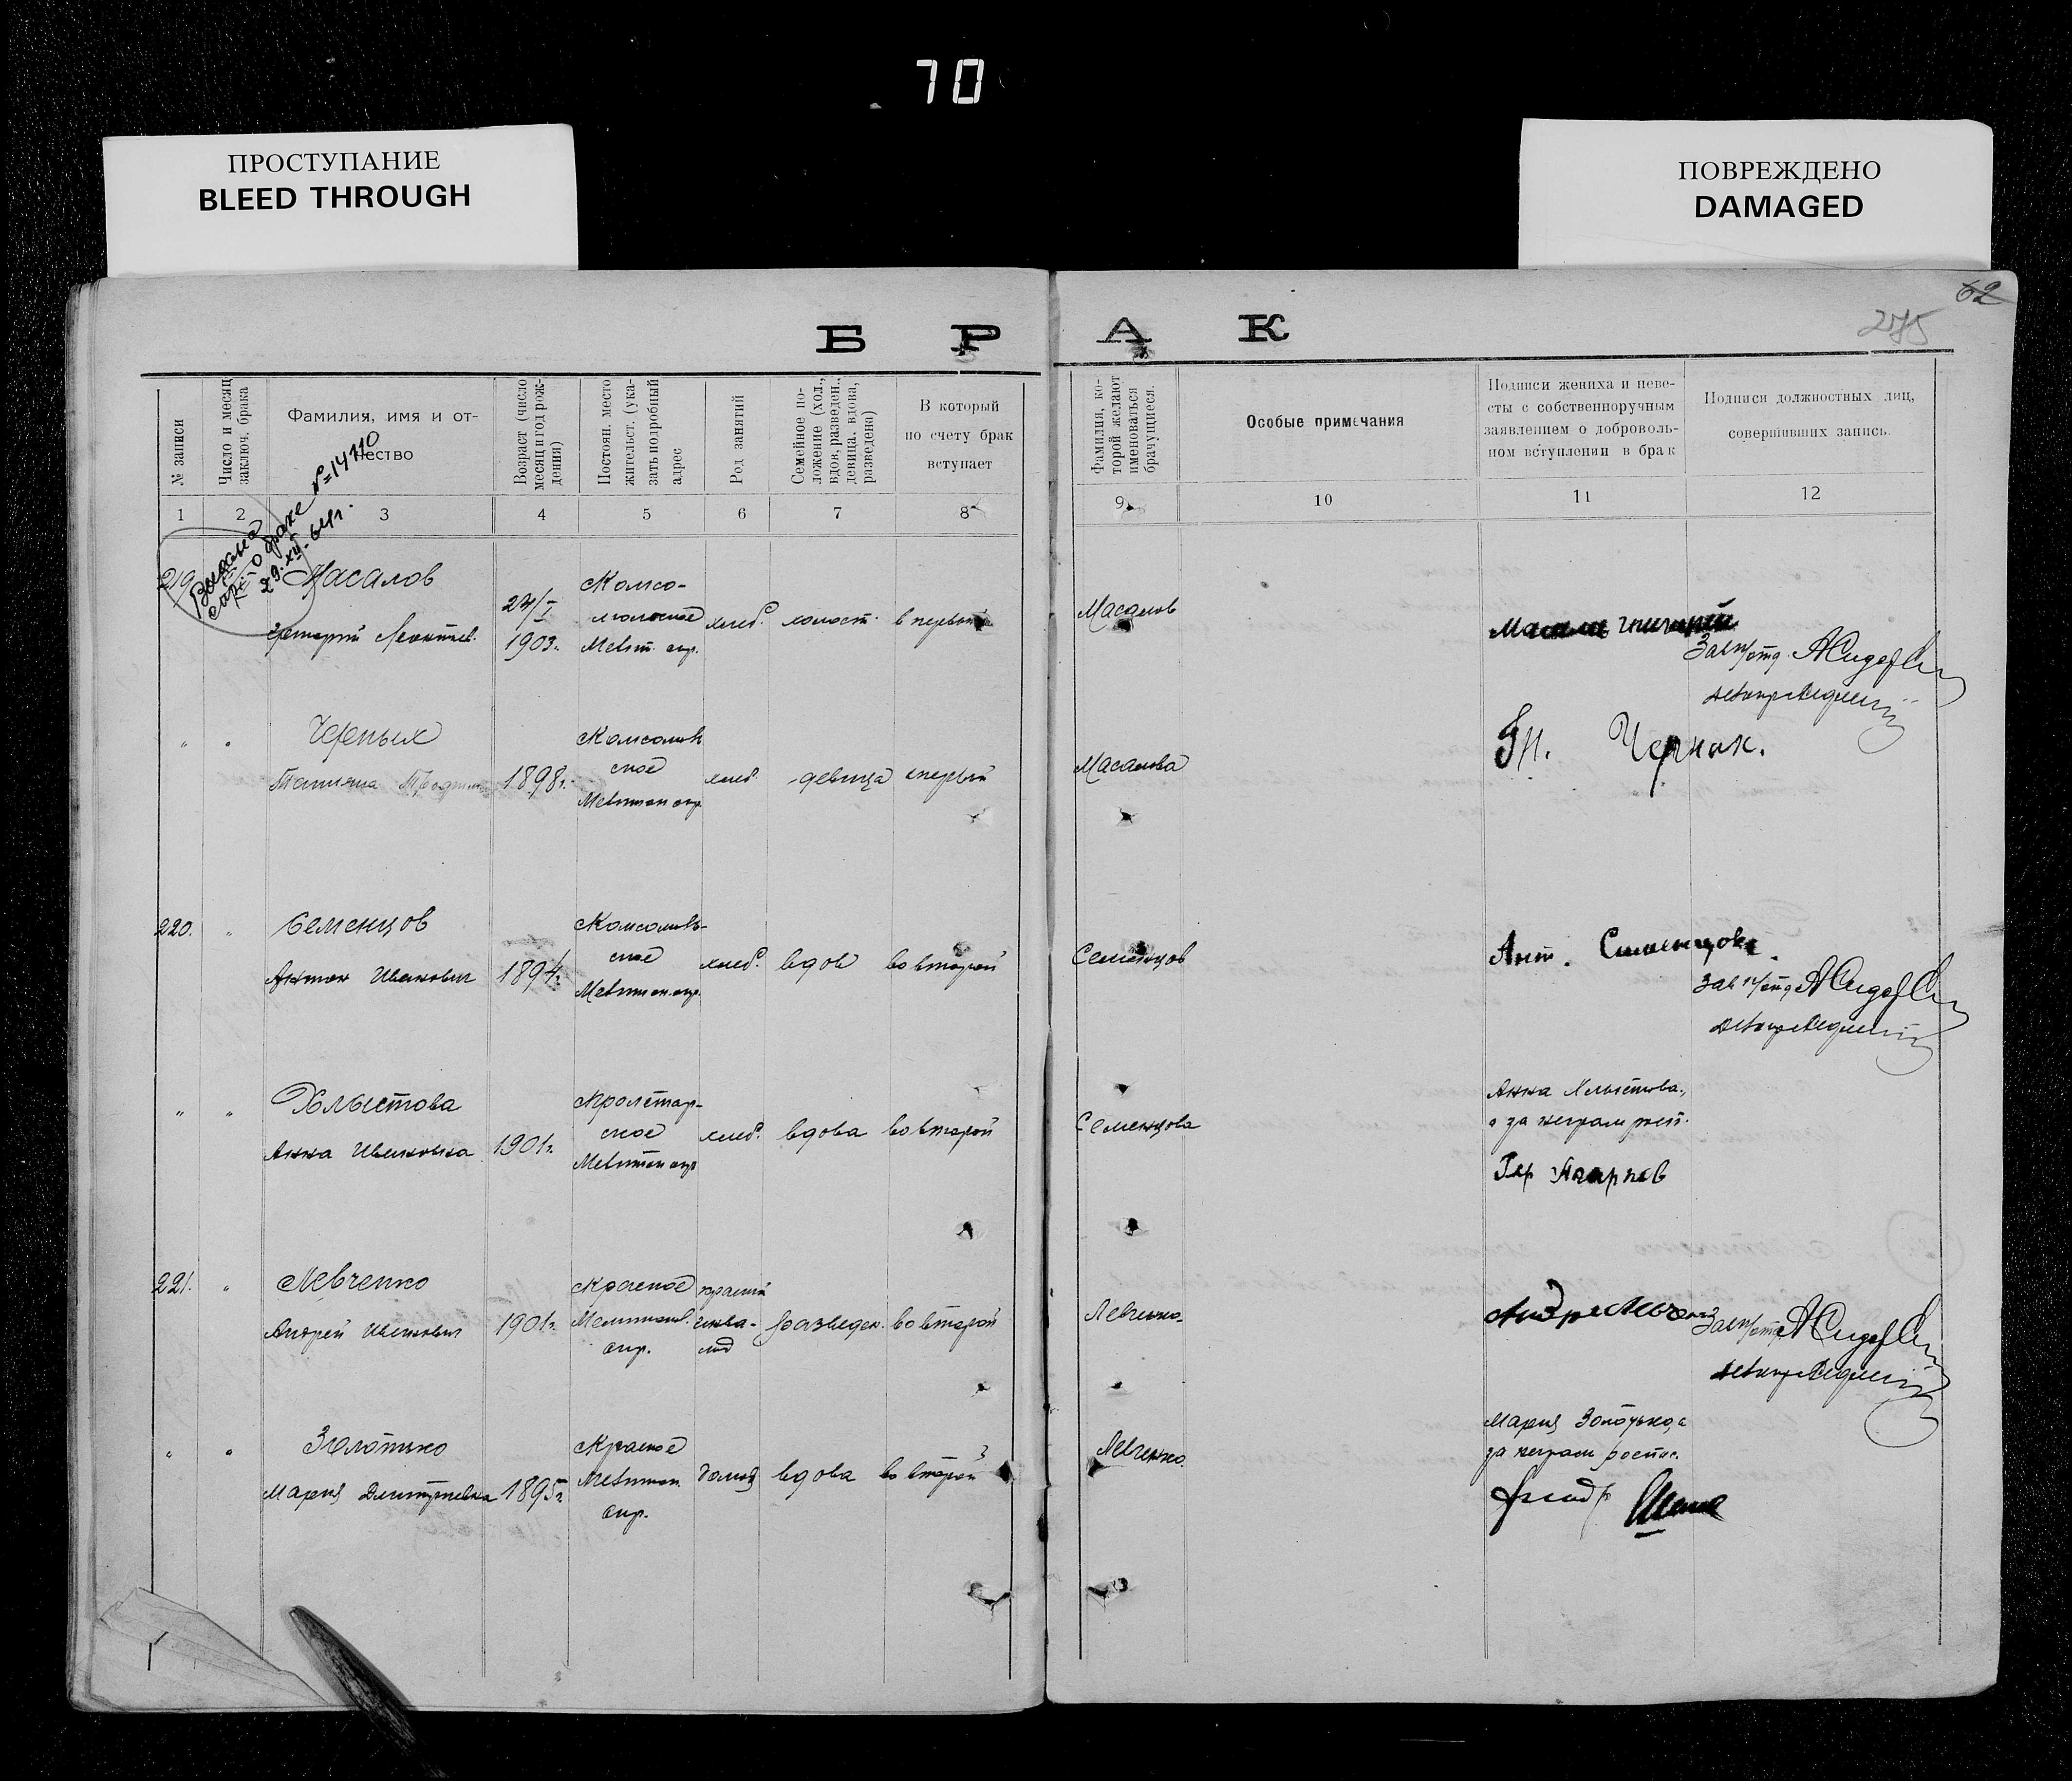 70
ПРОСТУПАНИЕ
BLEED THROUGH
ПОВРЕЖДЕНО
DAMAGED
62
275
Б Р А К
№ записи
Число и месяц
заключ. брака
Фамилия, имя и от-
чество
Возраст (число
месяц и год рож-
дения)
Постоян. место
жительст. (ука-
зать подробный
адрес
Род занятий
Семейное по-
ложение (хол.,
вдов, разведен.,
девица, вдова,
разведена)
В который
по счету брак
вступает
Фамилия, ко-
торой желают
именоваться
брачущиеся.
Особые примечания
Подписи жениха и неве-
сты с собственноручным
заявлением о доброволь-
ном вступлении в брак
Подписи должностных лиц,
совершивших запись.
1 2 3 4 5 6 7 8 9 10 11 12
о браке №=14110
29.XII.64г.
219
Масалов
Григорий Леонтьев.
24/I
1903г.
Комсо-
мольское
Мелит. окр.
хлеб. холост. в первый
Масалов
Зав п/отд.
" "
Черных
Татьяна
1898г.
Комсомоль
ское
Мелитоп окр
хлеб. девица первый
Масалова
Черных.
220. "
Семенцов
Антон Иванович
1894г.
Комсомоль-
ское
Мелитоп. окр.
хлеб. вдов во второй
Семенцов
Ант. Семенцов.
Зав п/отд
" "
Хлыстова
Анна Ивановна
1901г.
Пролетар-
ское
Мелитоп окр
хлеб. вдова во второй
Семенцова
Анна Хлыстова,
а за неграм расп.
221. "
Левченко
Андрей Иванович
1901г.
Красное
Мелитоп.
окр.
инва-
лид
разведен. во второй
Левченко.
Зав п/отд
" "
Золотько
Мария Дмитриевна
1895г.
Красное
Мелитоп.
окр.
домой вдова во второй
Левченко.
Мария Золотько, а
за неграм роспис.